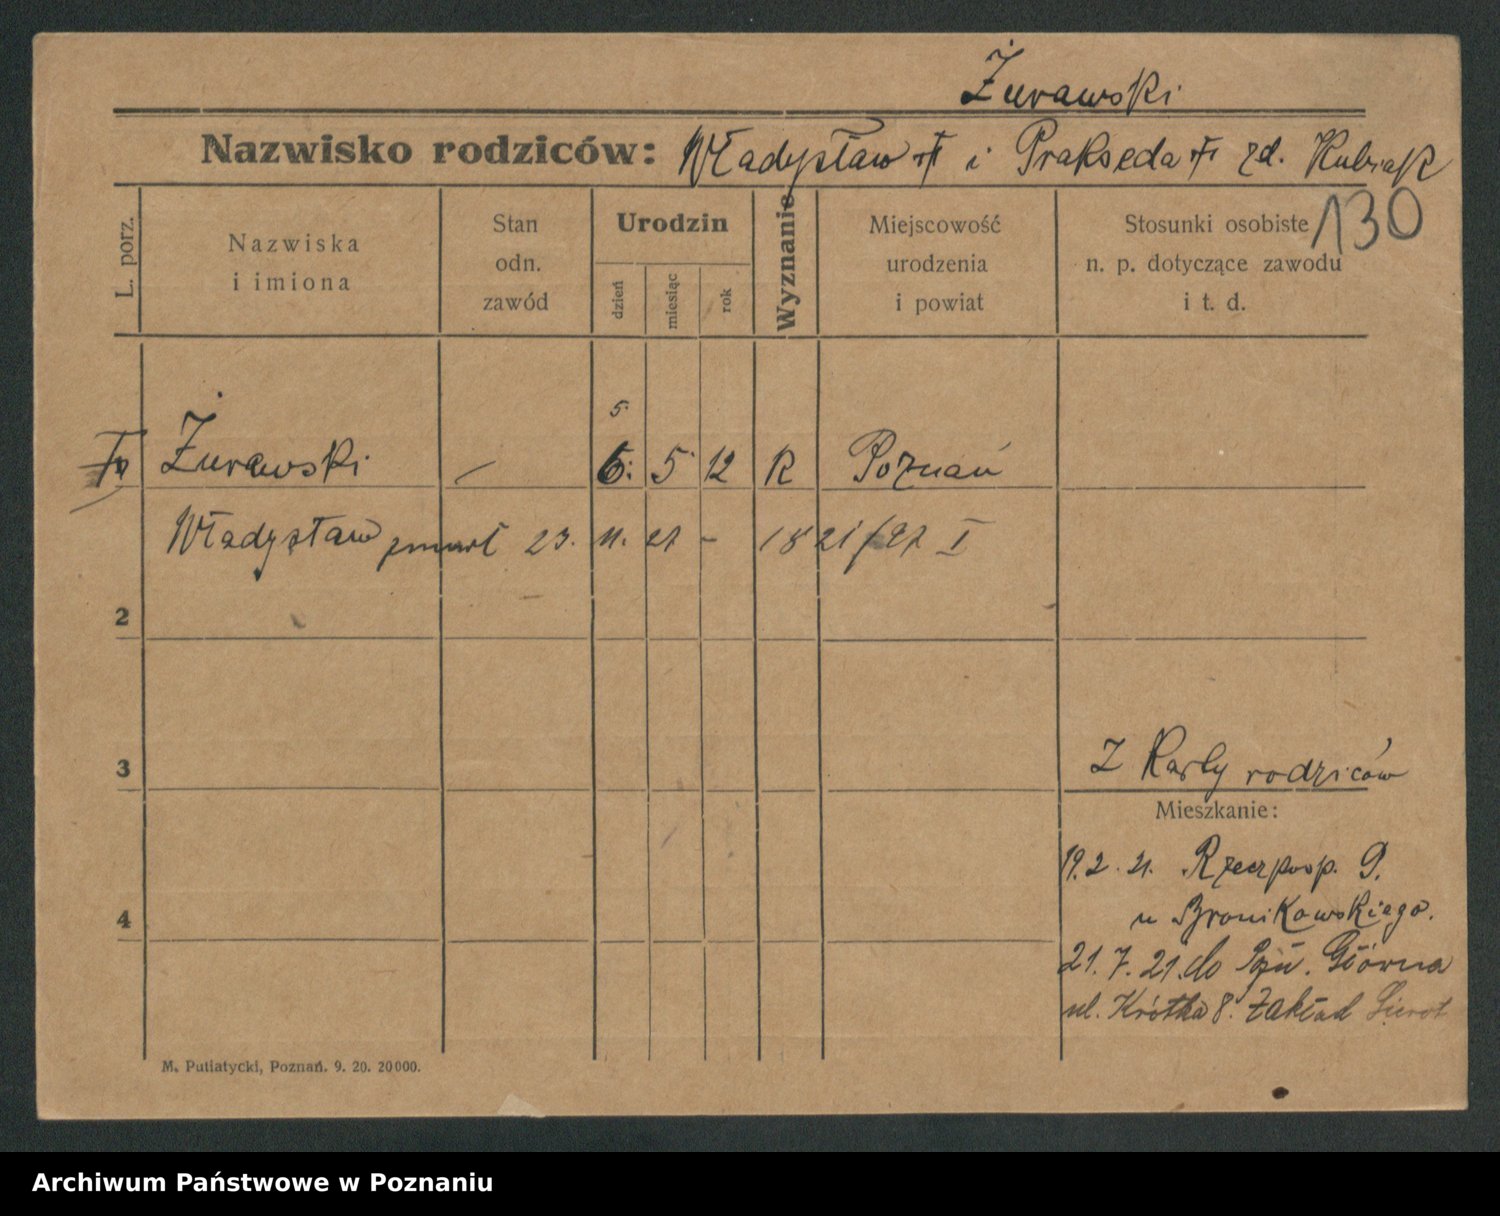 Żurawski
Nazwisko rodziców: Władysław i Prakseda zd. Kubiak
130
L. porz.
Nazwiska
i imiona
Stan
odn.
zawód
Urodzin
dzień
miesiąc
rok
Wyznanie
Miejscowość
urodzenia
i powiat
Stosunki osobiste
n. p. dotyczące zawodu
i t. d.
5.
Żurawski — 6. 5 12 R Poznań
Władysław zmarł 23. 11. 27 - 1821/27 I
2
3
Z Karty rodziców
Mieszkanie:
19.2.21. Rzeczposp. 9.
u Bronikowskiego.
4
21.7.21. do Pozn. Główna
ul. Krótka 8. Zakład Sierot
M. Putiatycki, Poznań. 9. 20. 20000.
Archiwum Państwowe w Poznaniu